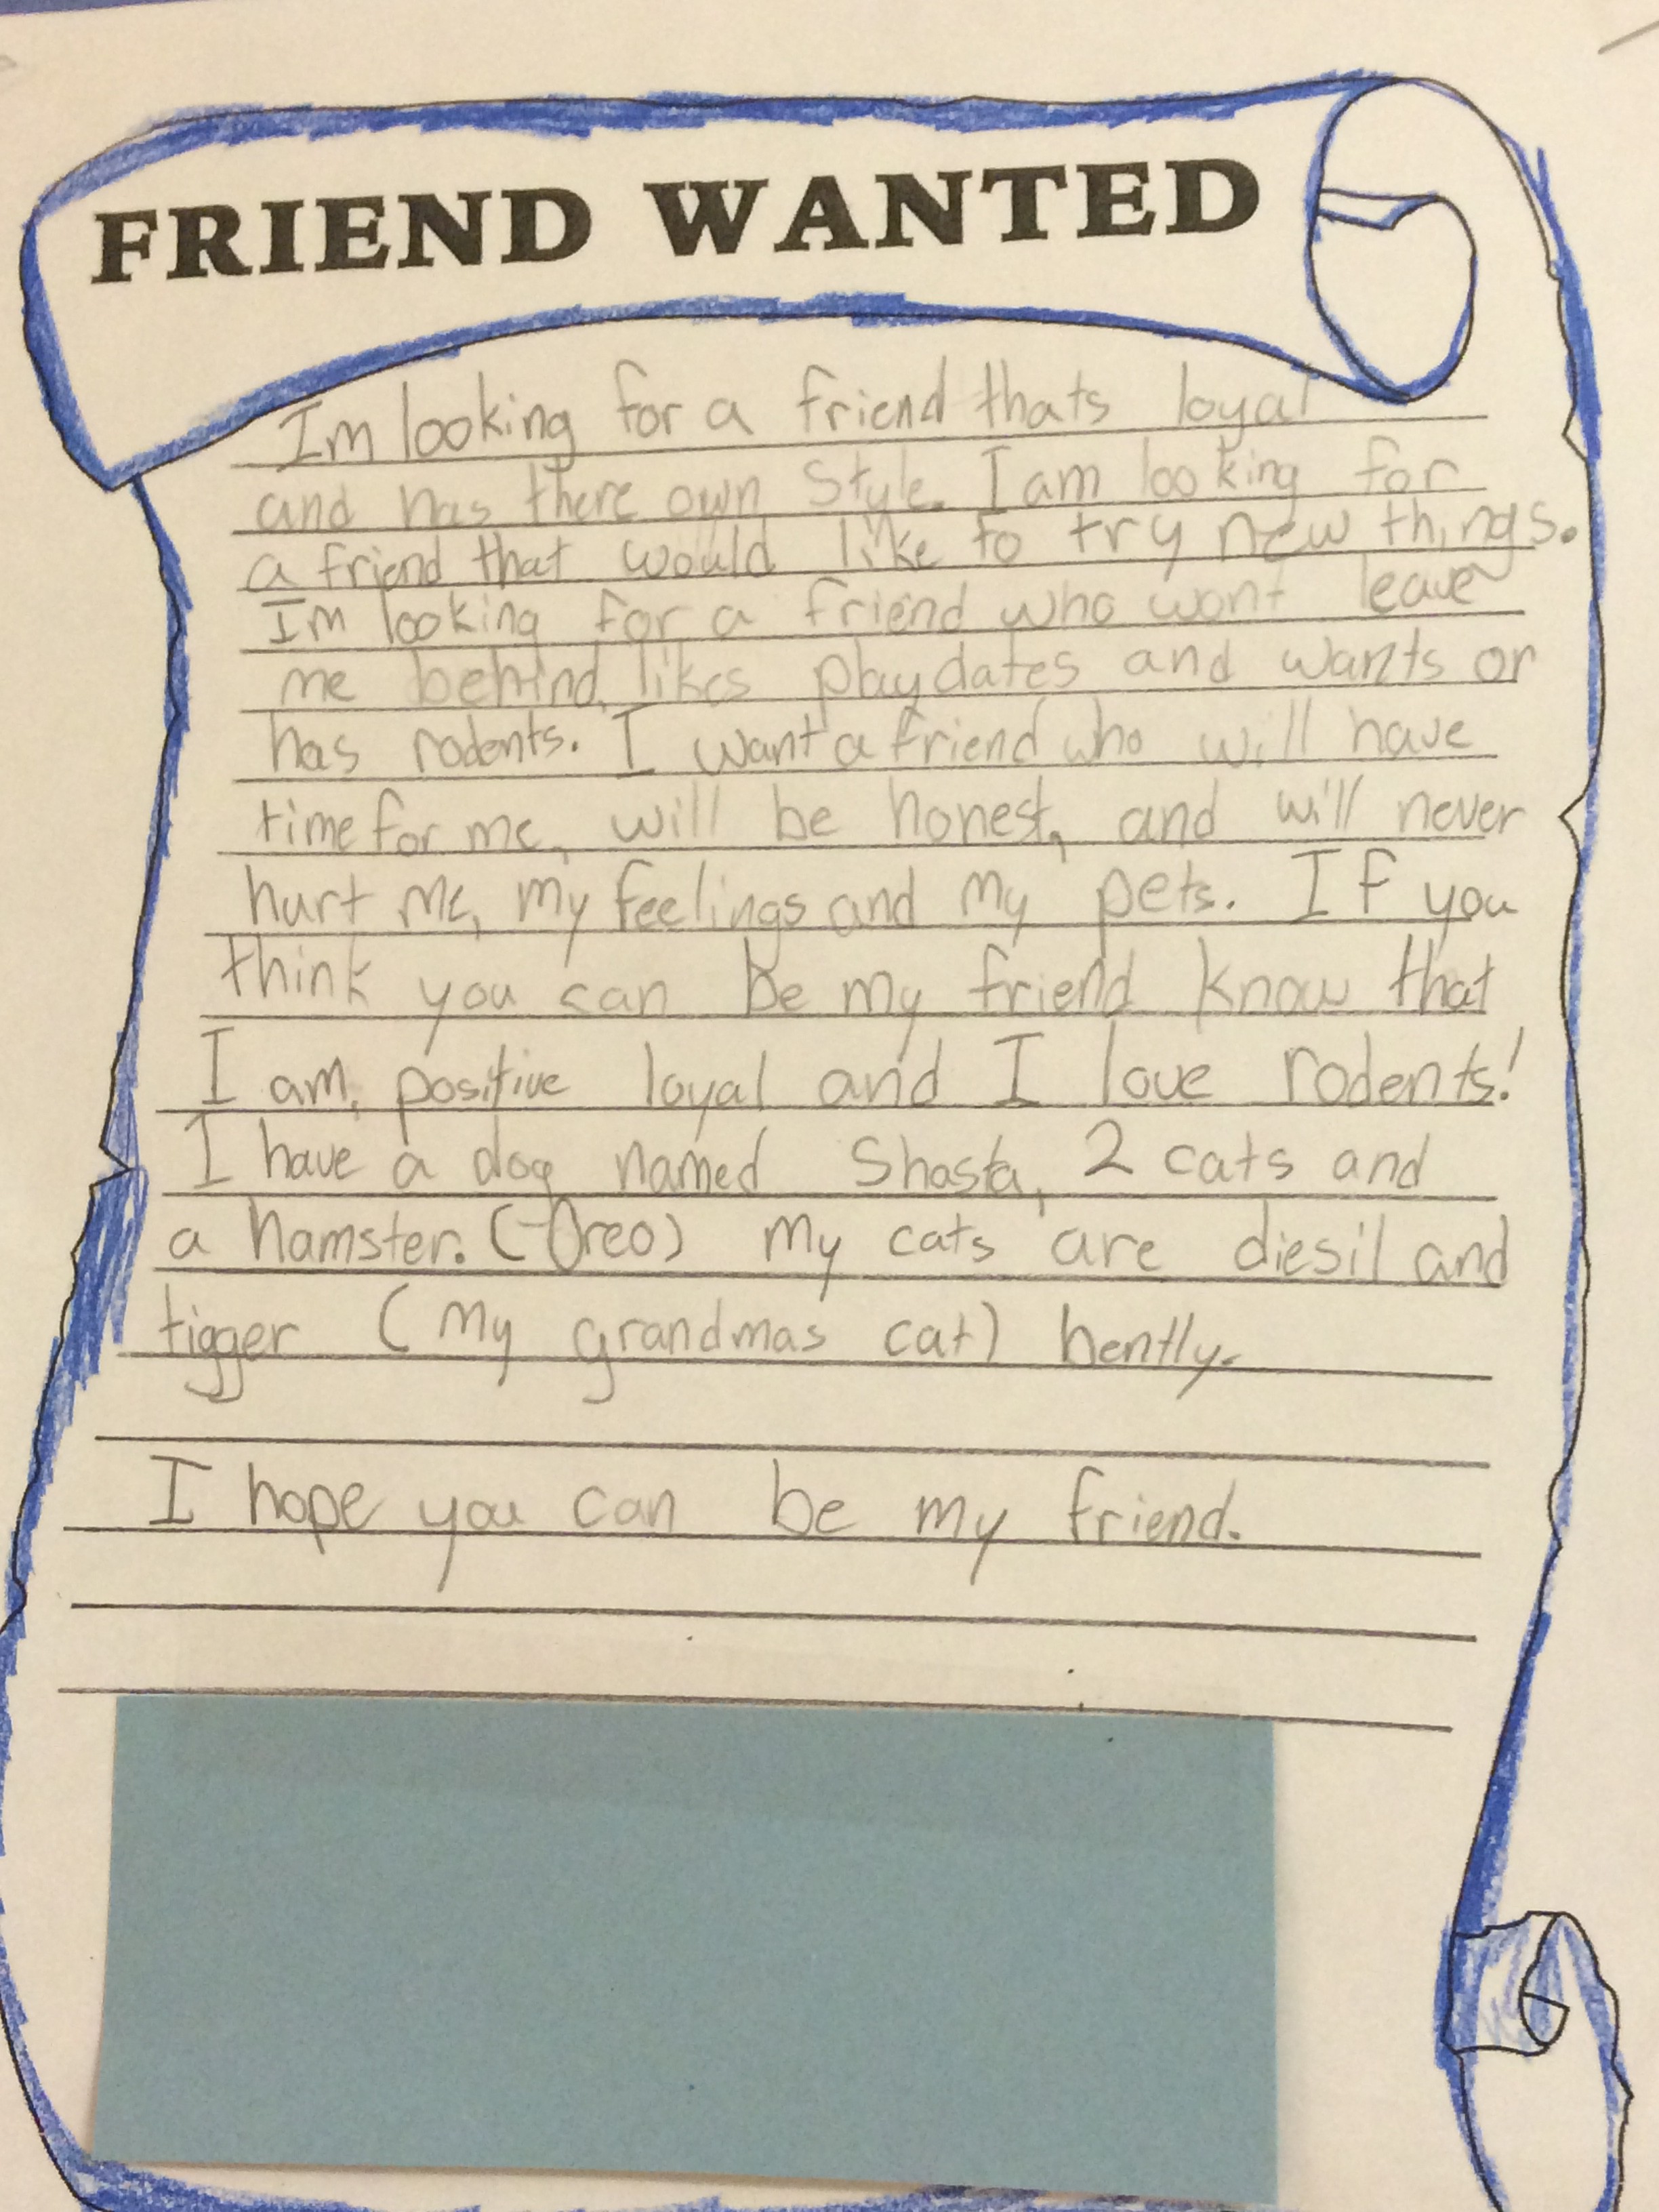 FRIEND WANTED
Im looking for a friend thats loyal
and has there own style. I am looking for
a friend that would like to try new things.
Im looking for a friend who wont leave
me behind, likes playdates and wants or
has rodents. I want a friend who will have
time for me, will be honest, and will never
hurt me, my feelings and my pets. If you
think you can be my friend know that
I am, positive loyal and I love rodents!
I have a dog named Shasta, 2 cats and
a hamster. (Oreo) my cats are diesil and
tigger (my grandmas cat) bently.
I hope you can be my friend.